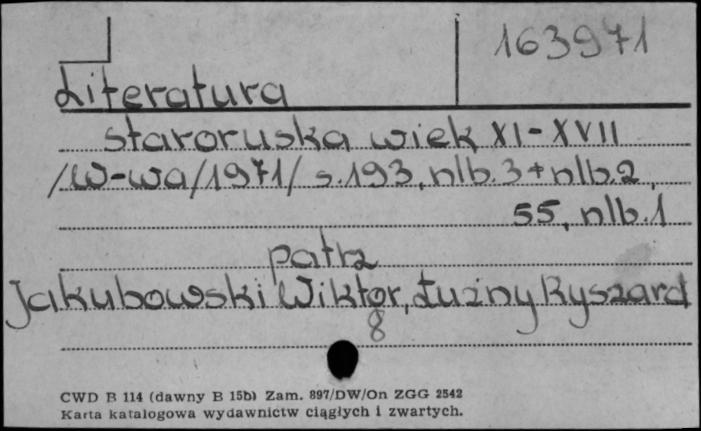 163971
Literatura
staroruska wiek XI-XVII
/W-wa/1971/ s.193, nlb.3+nlb.2,
55, nlb.1
patrz
Jakubowski Wiktor, Łużny Ryszard
8
CWD B 114 (dawny B 15b) Zam. 897/DW/On ZGG 2542
Karta katalogowa wydawnictw ciągłych i zwartych.